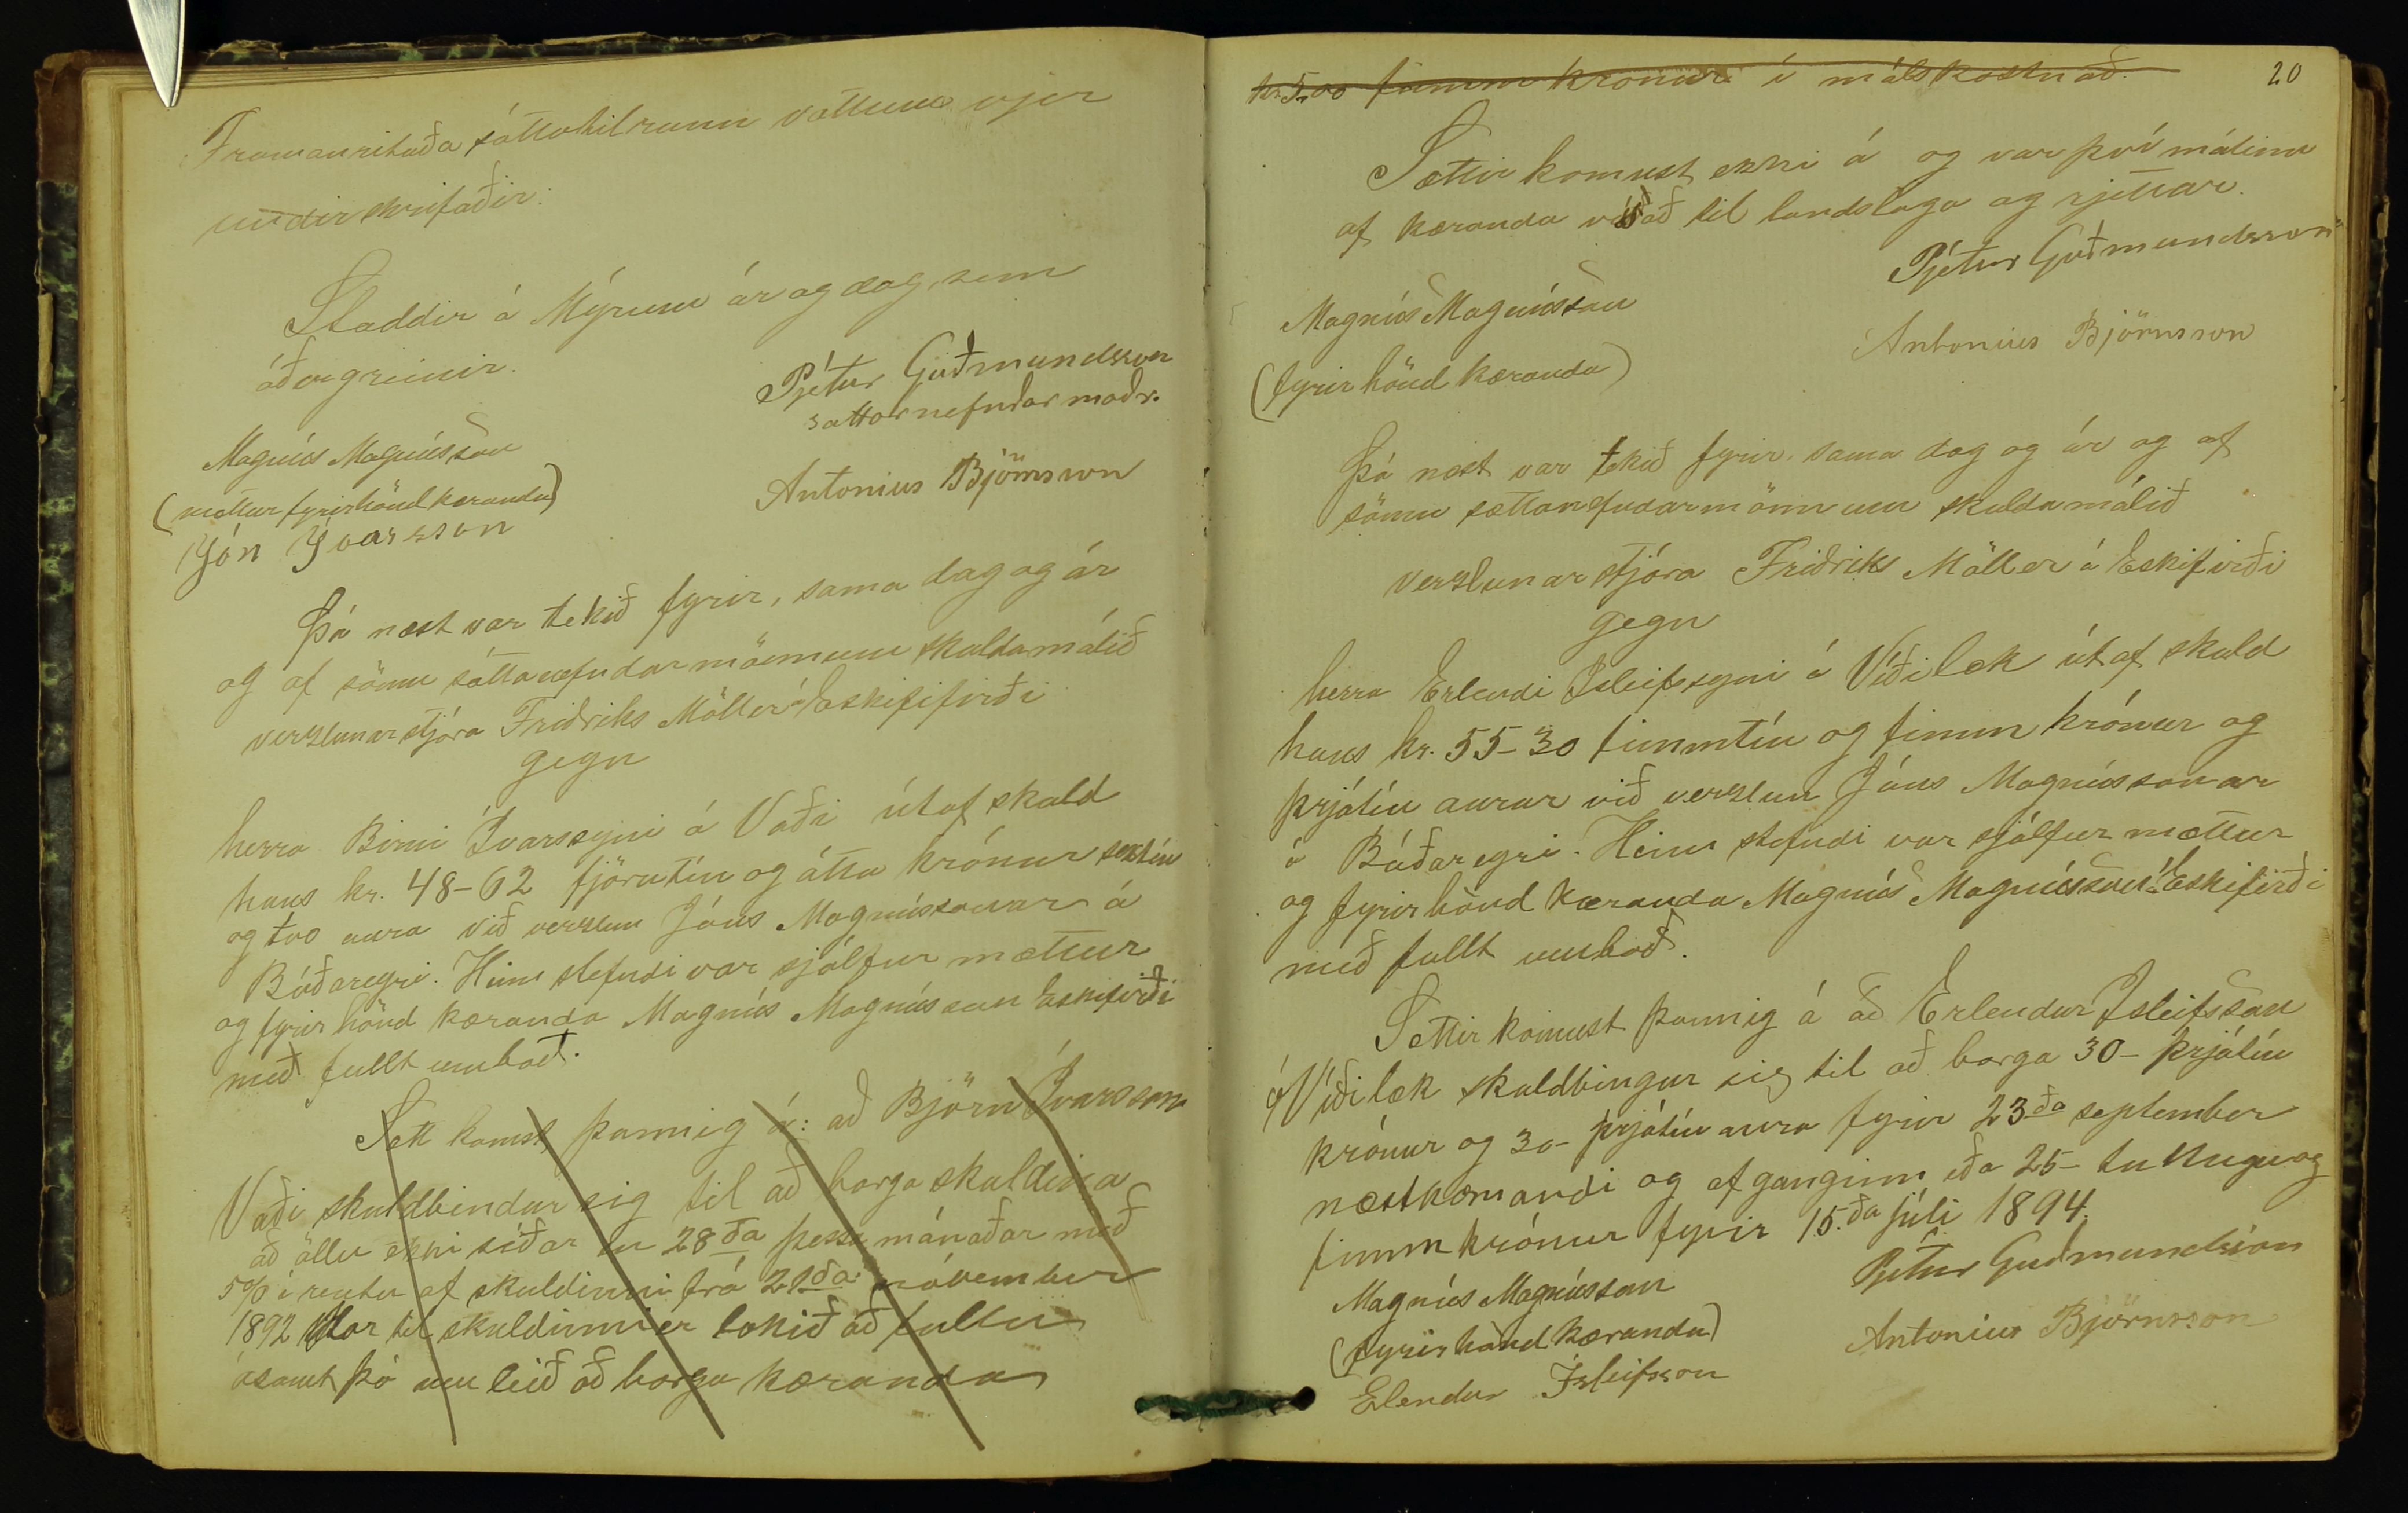 Framanritaða sáttatilraun vottum vjer
undirskrifaðir.
Staddir á Mýrum ár og dag sem
áður greinir.
Pjétur Guðmundsson
sattarnefndarmaðr.
Magnús Magnússon
(mættur fyrir hönd kæranda)
Antonius Björnsson
Jón Ívarsson
Þá næst var tekið fyrir, sama dag og ár
og af sömu sáttanefndarmönnum skuldamálið
verzlunarstjóra Friðriks Möller á Eskififirði
gegn
herra Birni Ívarssyni á Vaði útaf skuld
hans kr. 48-62 fjörutíu og átta krónur sextíu
og tvo aura við verzlun Jóns Magnússonar á
Búðareyri. Hinn stefndi var sjálfur mættur
og fyrir hönd kæranda Magnús Magnússon Eskifirði
með fullt umboð.
Sætt komst þannig á: að Björn Ívarsson
Vaði skuldbindur sig til að borga skuldina
að öllu ekki síðar en 28ða þessa mánaðar með
5% í rentu af skuldinni frá 21ða nóvember
1892 þar til skuldinni er lokið að fullu
ásamt þá um leið að borga kæranda
20
kr. 5,00 fimm krónur í málskostnað.
Sættir komust ekki á og var því málinu
af kæranda vísað til landslaga og rjettar.
Pjétur Guðmundsson
Magnús Magnússon
(fyrir hönd kæranda)
Antonius Björnsson
Þá næst var tekið fyrir, sama dag og ár og af
sömu sættanefndarmönnum skuldamálið
verzlunarstjóra Friðriks Möller á Eskifirði
gegn
herra Erlendi Ísleifssyni á Víðilæk útaf skuld
hans kr. 55-30 fimmtíu og fimm krónur og
þrjátíu aurar við verzlun Jóns Magnússonar
á Búðareyri. Hinn stefndi var sjálfur mættur
og fyrir hönd kæranda Magnús Magnússon á Eskifirði
með fullt umboð.
Sættir komust þannig á að Erlendur Isleifsson
á Víðilæk skuldbingur sig til að borga 30- þrjátíu
krónur og 30- þrjátíu aura fyrir 23ða september
næstkomandi og afganginn eða 25- tuttugu og
fimm krónur fyrir 15.ða júlí 1894.
Magnús Magnússon
(fyrir hönd kæranda)
Pjetur Guðmundsson
Antonius Björnsson
Elendur Ísleifsson